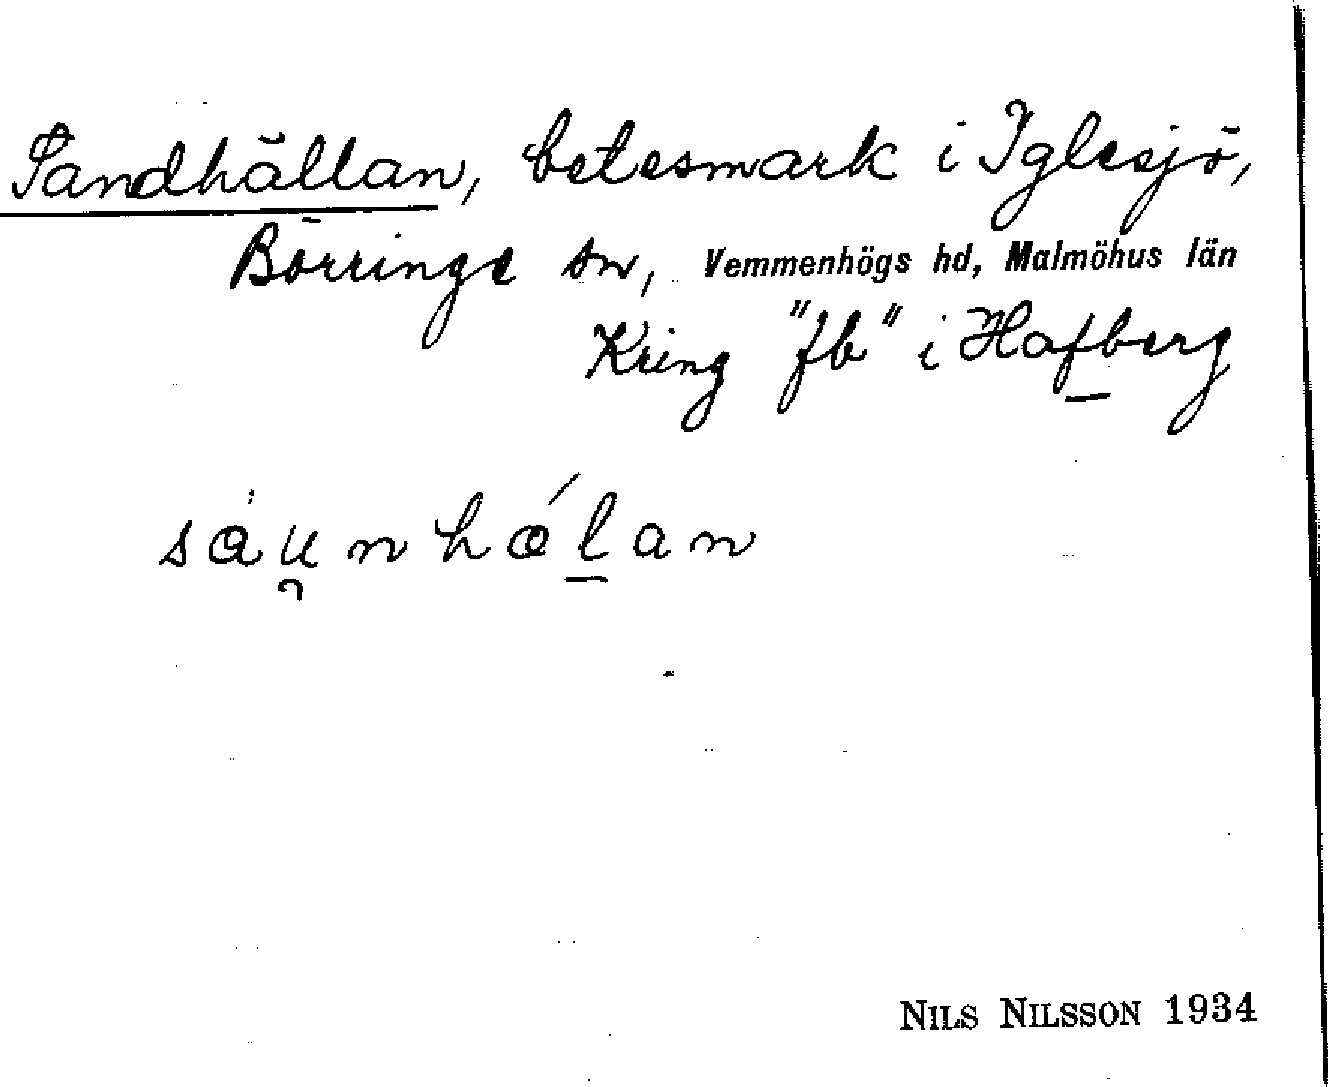 Sandhällan, betesmark i Iglesjö,
Börringe sn, Vemmenhögs hd, Malmöhus län
Kring "fb" i Hafberg
sáu̯nhǽl̲an
NILS NILSSON 1934